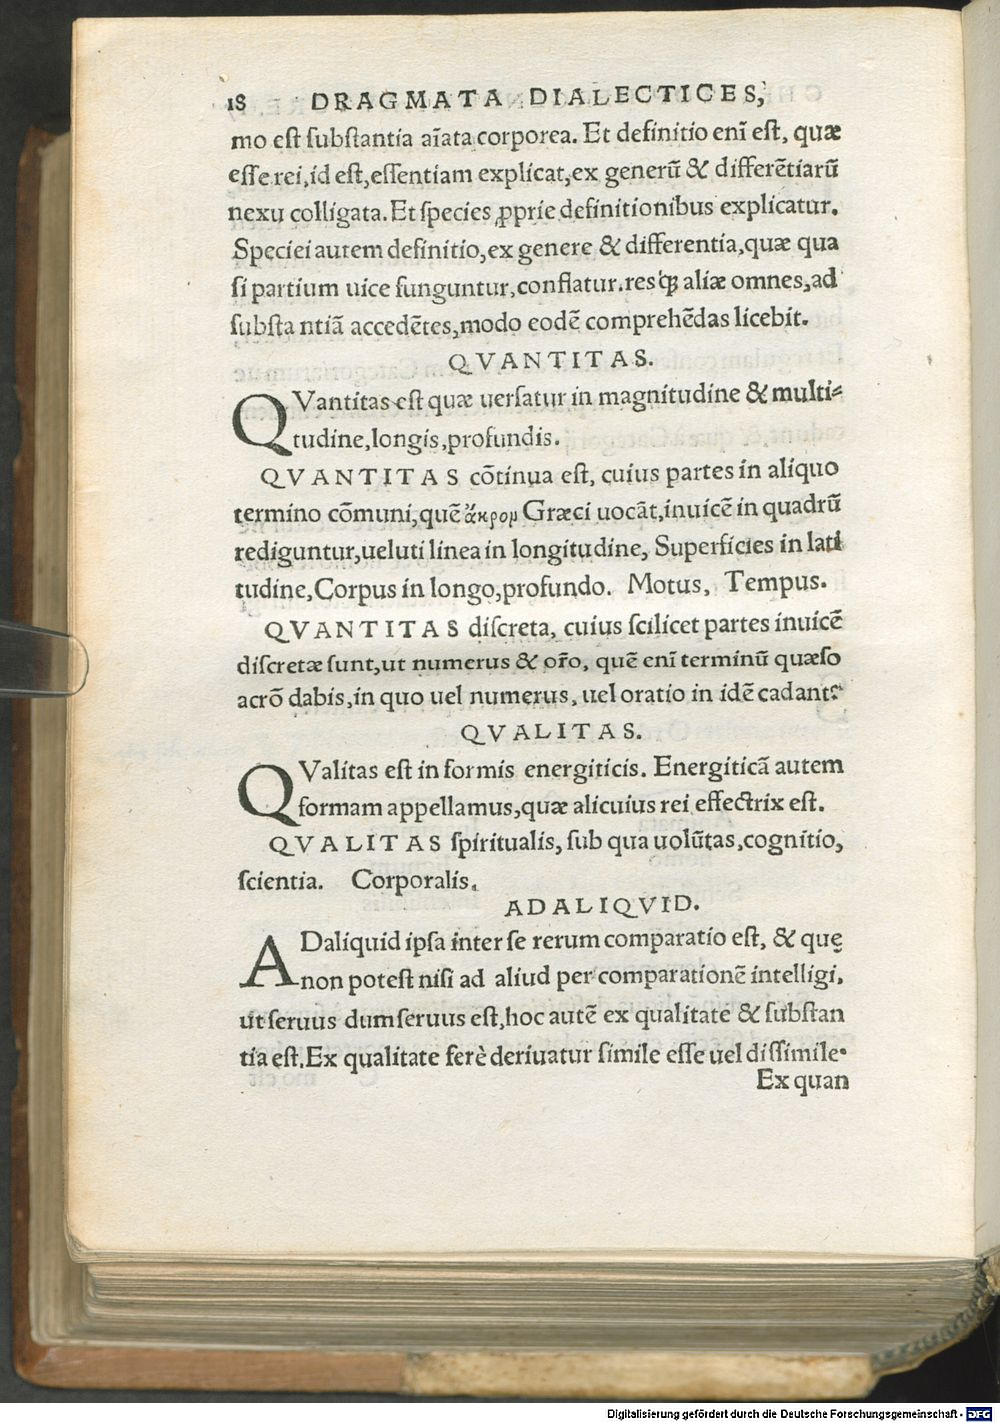 18 DRAGMATA DIALECTICES,
mo est substantia aĩata corporea. Et definitio enĩ est, quæ
esse rei, id est, essentiam explicat, ex generũ & differẽtiarũ
nexu colligata. Et species ꝓprie definitionibus explicatur.
Speciei autem definitio, ex genere & differentia, quæ qua
si partium uice funguntur, conflatur. resq́ꝫ aliæ omnes, ad
substa ntiã accedẽtes, modo eodẽ comprehẽdas licebit.
QVANTITAS.
QVantitas est quæ uersatur in magnitudine & multi-
tudine, longis, profundis.
QVANTITAS cõtinua est, cuius partes in aliquo
termino cõmuni, quẽ ἄκρομ Græci uocãt, inuicẽ in quadrũ
rediguntur, ueluti linea in longitudine, Superficies in lati
tudine, Corpus in longo, profundo. Motus, Tempus.
QVANTITAS discreta, cuius scilicet partes inuicẽ
discretæ sunt, ut numerus & or̃o, quẽ enĩ terminũ quæso
acrõ dabis, in quo uel numerus, uel oratio in idẽ cadant?
QVALITAS.
QValitas est in formis energiticis. Energiticã autem
formam appellamus, quæ alicuius rei effectrix est.
QVALITAS spiritualis, sub qua uolũtas, cognitio,
scientia. Corporalis.
AD ALIQVID.
ADaliquid ipsa inter se rerum comparatio est, & quę
non potest nisi ad aliud per comparationẽ intelligi,
ut seruus dum seruus est, hoc autẽ ex qualitate & substan
tia est. Ex qualitate ferè deriuatur simile esse uel dissimile.
Ex quan
Digitalisierung gefördert durch die Deutsche Forschungsgemeinschaft - DFG